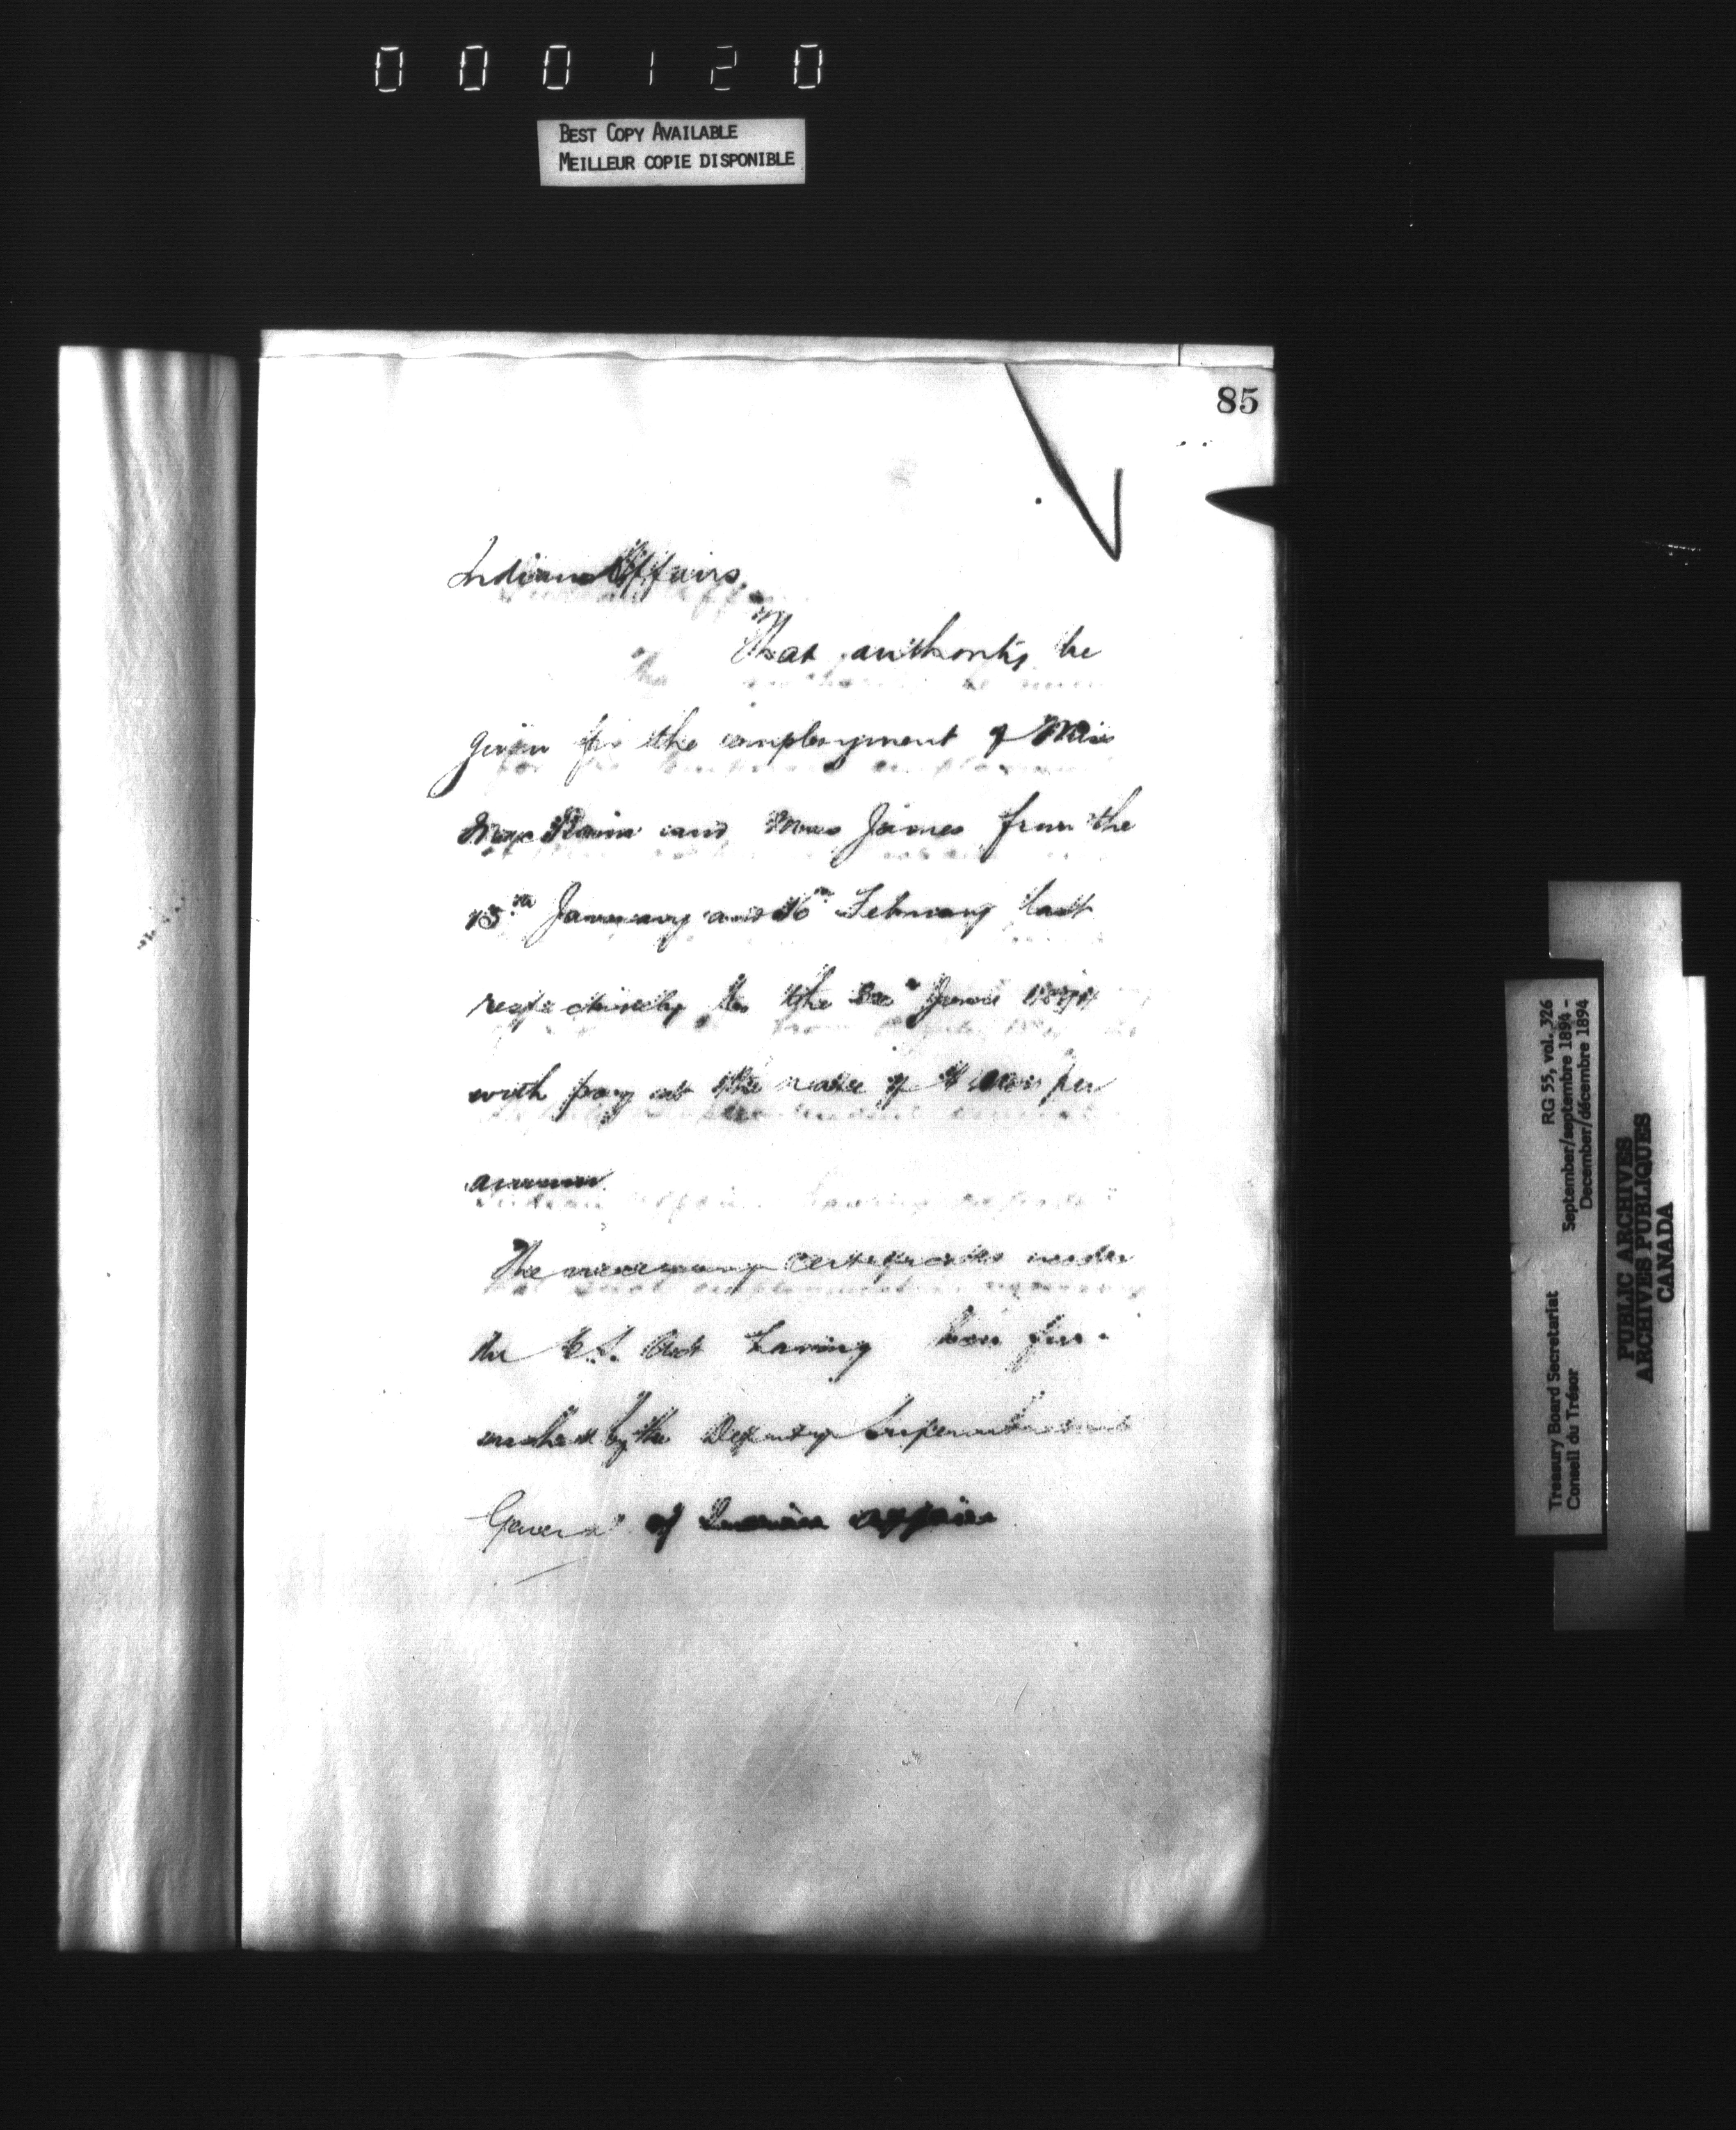 000120
BEST COPY AVAILABLE
MEILLEUR COPIE DISPONIBLE
85
Indian Affairs.
That authority be
given for the employment of Miss
and Miss James from the
15th January and 16th February last
respectively to the June
with pay at the rate of $ per
annum.
The necessary certificates under
the C.S. Act having been fur-
nished by the Deputy Superintendent
General of Indian Affairs
RG 55, vol. 326
September/septembre 1894 -
December/décembre 1894
Treasury Board Secretariat
Conseil du Trésor
PUBLIC ARCHIVES
ARCHIVES PUBLIQUES
CANADA